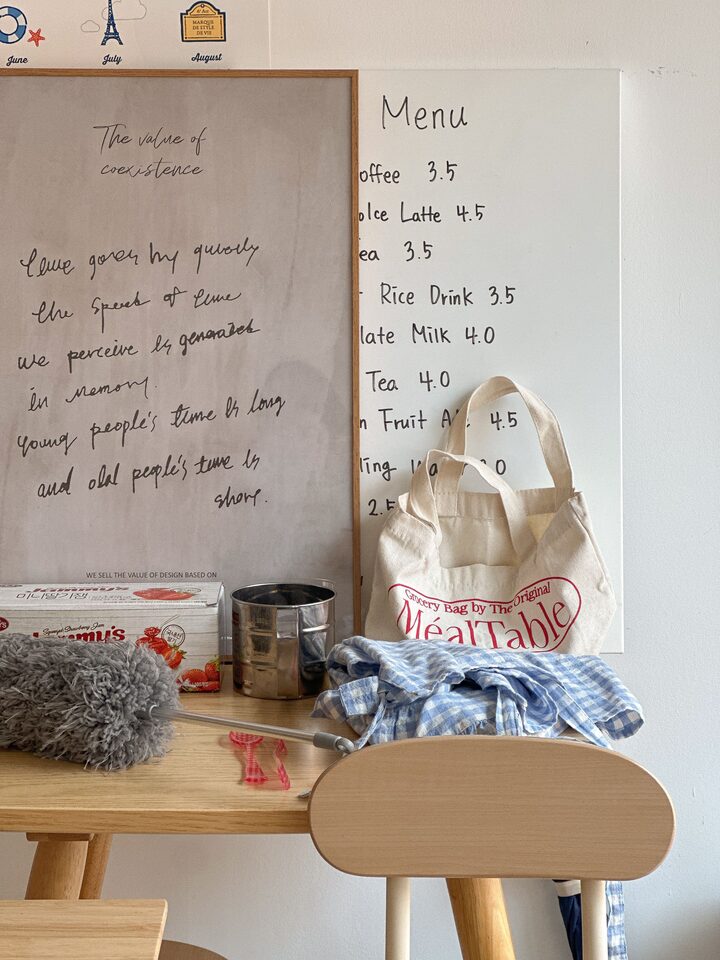 June
July
August
MARQUE
DE STYLE
DE VIE
The value of
coexistence
time goes by quickly
the speed of time
we perceive is generated
in memory.
young people's time is long
and old people's time is
short.
WE SELL THE VALUE OF DESIGN BASED ON
Menu
offee 3.5
olce Latte 4.5
ea 3.5
Rice Drink 3.5
late Milk 4.0
Tea 4.0
n Fruit A 4.5
ling Wa .0
2.5
Grocery Bag by The Original
MéalTable
미니딸기잼
Squeeze Strawberry Jam
Jammy's